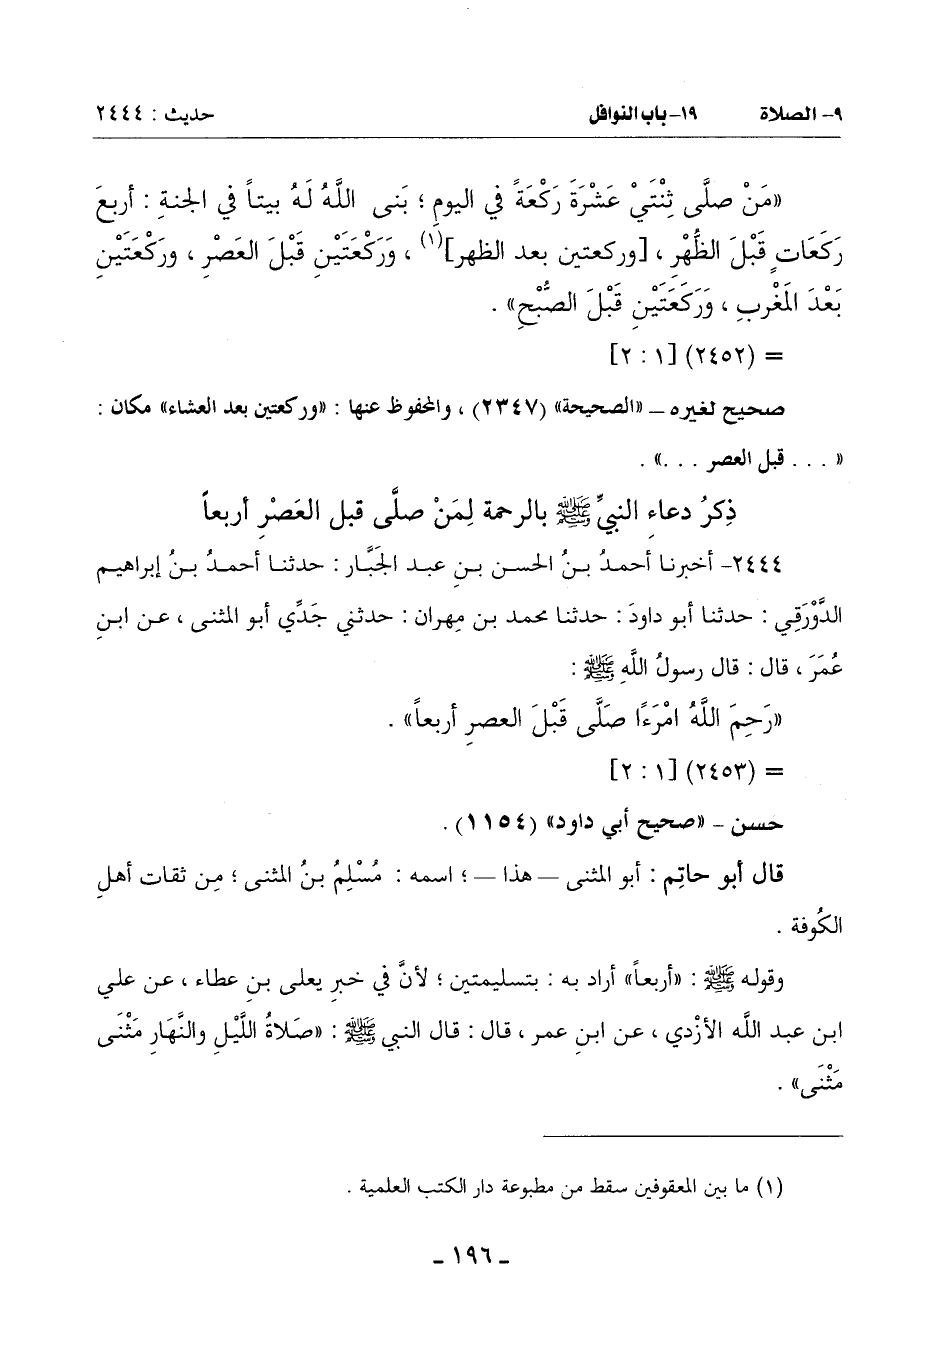 ٩- الصلاة ١٩-باب النوافل حديث : ٢٤٤٤
«مَنْ صلَّى ثِنْتَيْ عَشْرَةَ رَكْعَةً في اليومِ ؛ بَنى اللَّهُ لَهُ بيتاً في الجنةِ : أربعَ
رَكَعَاتٍ قَبْلَ الظُّهْرِ ، [وركعتين بعد الظهر](١) ، وَرَكْعَتَيْنِ قَبْلَ العَصْرِ ، ورَكْعَتَيْنِ
بَعْدَ المَغْرِبِ ، وَرَكَعَتَيْنِ قَبْلَ الصُّبْحِ» .
= (٢٤٥٢) [١ : ٢]
صحيح لغيره ــ «الصحيحة» (٢٣٤٧) ، والمحفوظ عنها : «وركعتين بعد العشاء» مكان :
« . . . قبل العصر . . .» .
ذِكرُ دعاءِ النبيِّ ﷺ بالرحمة لِمَنْ صلَّى قبل العَصْرِ أربعاً
٢٤٤٤- أخبرنا أحمدُ بنُ الحسن بنِ عبد الجَبَّار : حدثنا أحمدُ بنُ إبراهيم
الدَّوْرَقِي : حدثنا أبو داودَ : حدثنا محمد بن مِهران : حدثني جَدِّي أبو المثنى ، عن ابنِ
عُمَرَ ، قال : قال رسولُ اللَّهِ ﷺ :
«رَحِمَ اللَّهُ امْرَءًا صَلَّى قَبْلَ العصرِ أربعاً» .
= (٢٤٥٣) [١ : ٢]
حسن ـ «صحيح أبي داود» (١١٥٤) .
قال أبو حاتِم : أبو المثنى — هذا — ؛ اسمه : مُسْلِمُ بنُ المثنى ؛ مِن ثقات أهلِ
الكُوفة .
وقوله ﷺ : «أربعاً» أراد به : بتسليمتين ؛ لأنَّ في خبرِ يعلى بنِ عطاء ، عن علي
ابن عبد اللَّه الأزْدي ، عن ابنِ عمر ، قال : قال النبي ﷺ : «صَلاةُ اللَّيْلِ والنَّهَارِ مَثْنَى
مَثْنَى» .
(١) ما بين المعقوفين سقط من مطبوعة دار الكتب العلمية .
ـ ١٩٦ ـ